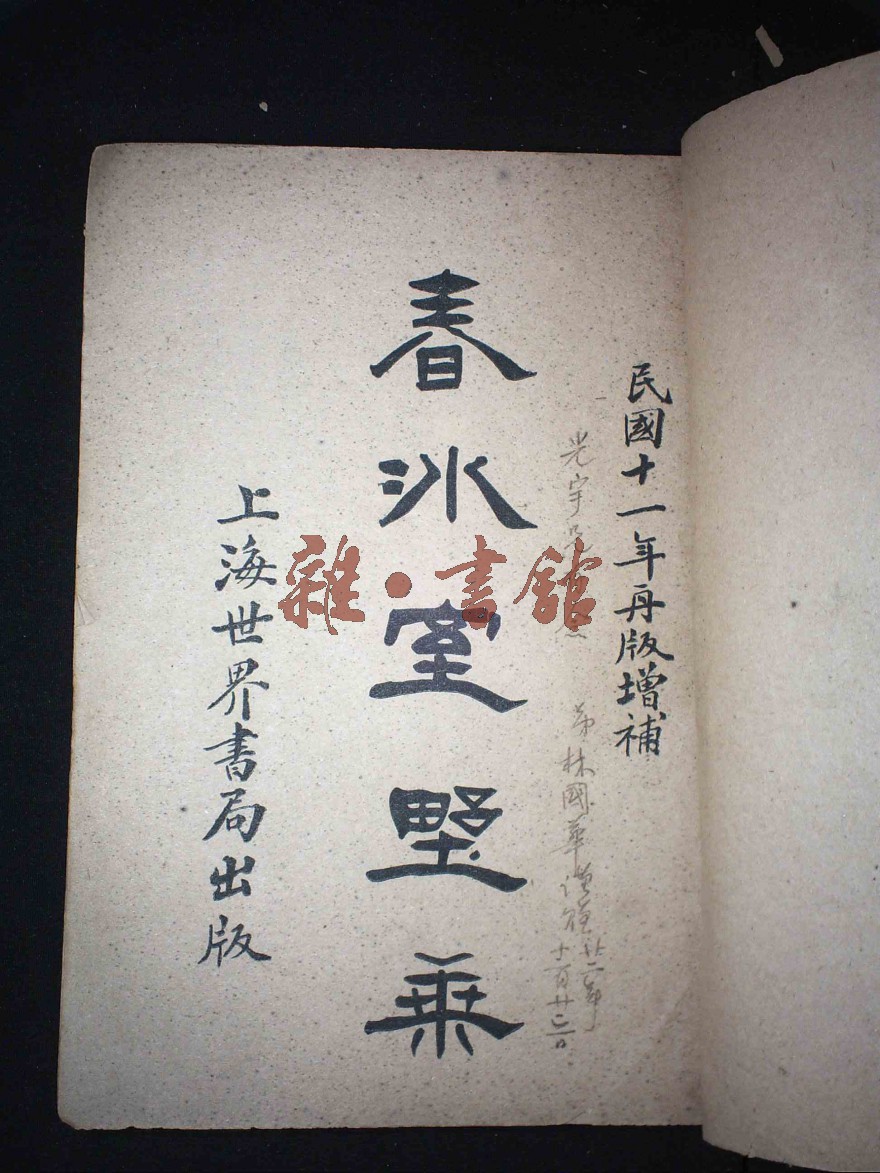 民國十一年再版增補
光宇兄
弟林國華謹贈 廿二年
十一月廿三日
春冰室野乘
上海世界書局出版
雜·書館